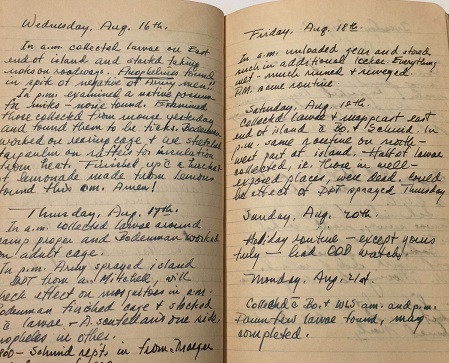 Wednesday, Aug. 16th.
In a.m. collected larvae on East
end of island and started taking
notes on roadways. Anophelines found
in spite of negative of Army men!!
In p.m. examined a native possum
for mites - none found. Examined
those collected from mouse yesterday
and found them to be ticks. Bodenman
worked on rearing cage & we stretched
tarpaulin on rafters to insulation
from heat. Finished up a bucket
of lemonade made from lemons
found this a.m. Amen!
Thursday, Aug. 17th.
In a.m. collected larvae around
camp proper and Bodenman worked
on adult cage.
In p.m. Army sprayed island
DDT from a Mitchell, will
check effect on mosquitoes in a.m.
Bodenman finished cage & stocked
larvae - A. scutellaris one side,
anopheles in other.
Schmid rep'ts in from
Friday, Aug. 18th.
In a.m. unloaded gear and stored
much in additional locker. Everything
wet - much ruined & surveyed
P.M. same routine
Saturday, Aug. 19th.
Collected larvae & mapped east
end of island c Bo. & Schmid. In
p.m. same routine on north-
west part of island. Half of larvae
collected, in those in well-
exposed places, were dead. Could
be effect of DDT sprayed Thursday
Sunday, Aug. 20th.
Holiday routine - except yours
truly - had OOD watch.
Monday, Aug. 21st.
Collected c Bo. & WLS a.m. and p.m.
larvae found, map
completed.